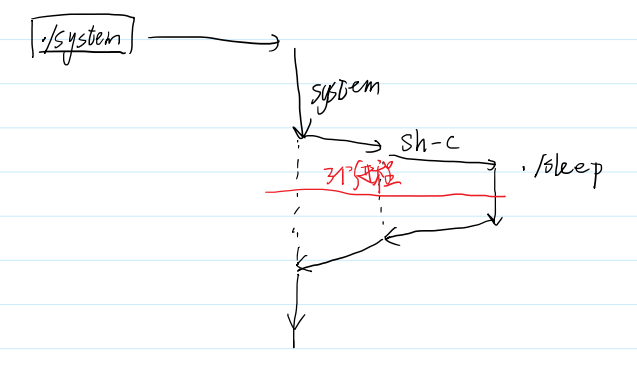 ./system
system
sh-c
./sleep
3个进程